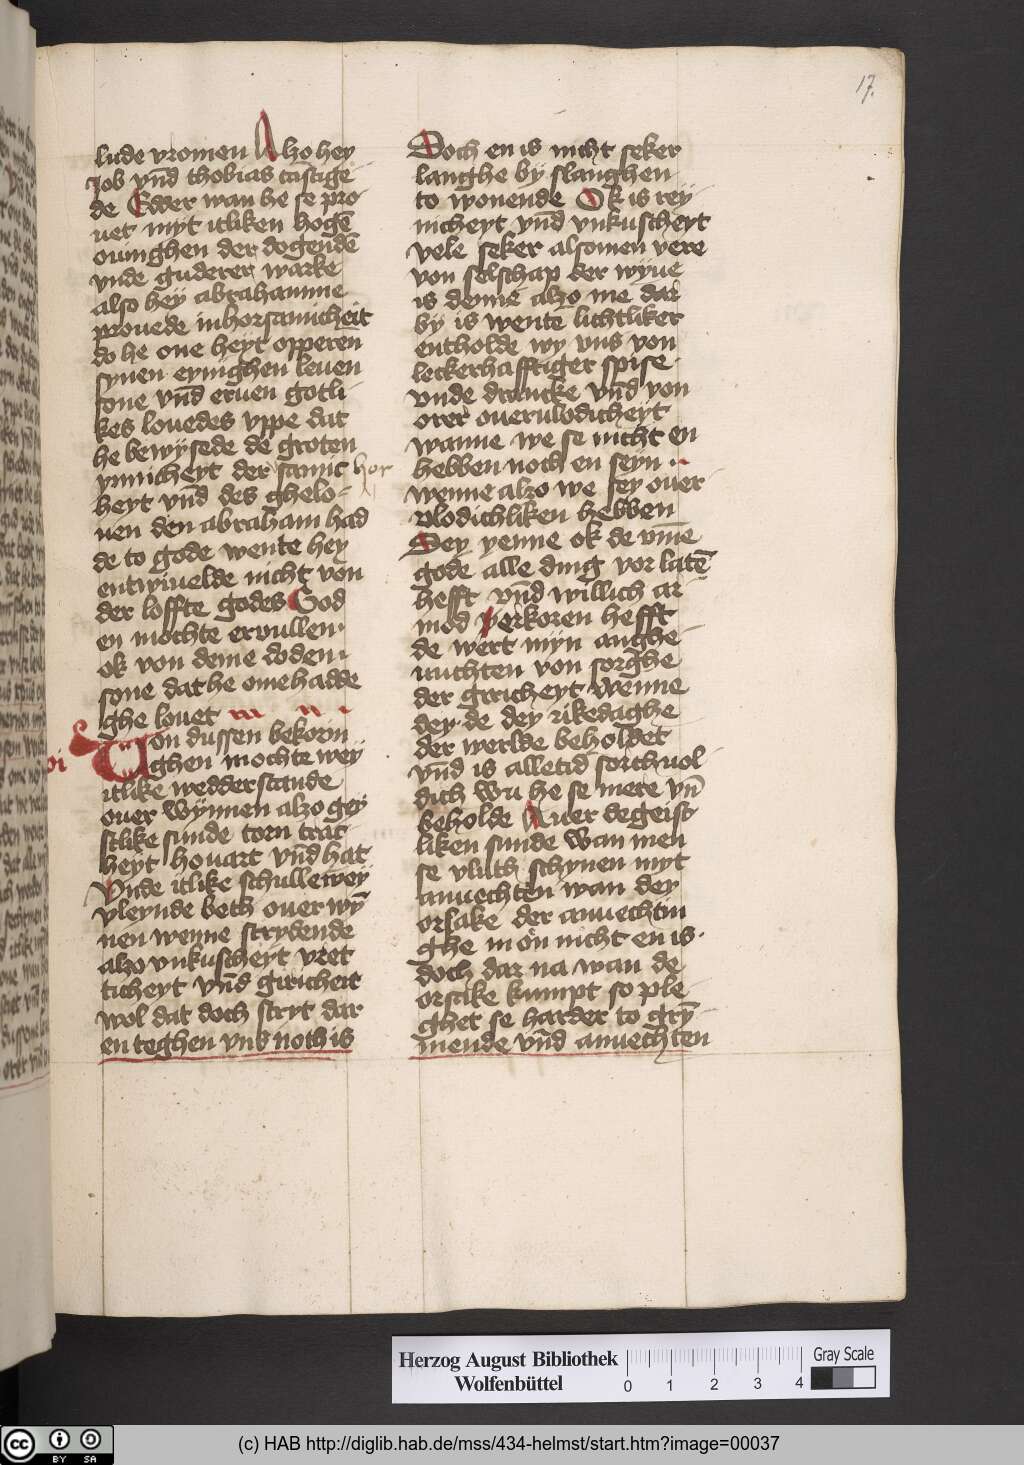 17.
lude vromen Alzo hey
Job vn̄d thobias castige
de Edder wan he se pro
uet myt itliken hogē
ouinghen der dogendē
vnde guderer warke
also hey abrahamme
prouede inhorsamcheit
do he one heyt opperen
synen eynighen leuen
sone vn̄d eruen gotli
kes louedes vppe dat
he bewysede de groten
ynnicheyt der samic hor
heyt vn̄d des ghelo-
uen den abraham had
de to gode wente hey
entwiuelde nicht von
der loffte godes God
en mochte ervullen
ok von deme doden
sone dat he ome hadde
ghe louet
vi
Von dussen bekorin
ghen mochte wey
itlike wedderstande
ouer wynnen alzo gey
stlike sunde torn trac
heyt houart vn̄d hat
Vnde itlike schulle wey
vleynde beth ouer wȳ
nen wenne strydende
alzo vnkuscheyt vret
ticheyt vn̄d giricheit
wol dat doch stryt dar
en teghen vns noth is
Doch en is nicht seker
langhe by slanghen
to wonende Ok is rey
nicheyt vn̄d vnkuscheyt
vele seker alsomen vere
von selschap der wyue
is denne alzo me dar
by is wentē lichtliker
entholde wy vns von
leckerhafftiger spise
vnde drancke vn̄d von
orer ouerulodicheyt
wanne we se nicht en
hebben noch en seyn
wenne alzo we sey ouer
vlodichliken hebben
Sey yenne ok de vm̄e
gode alle ding vor latē
hefft vn̄d willich ar
mod verkoren hefft
de wert myn anghe
uuchten von sorghe
der giricheyt wenne
dey de dey rikedaghe
der werlde beholdet
vn̄d is alletid sorchuol
dich wu he se mere vn̄
beholde Auer de geist
liken sunde wan men
se vluth schynen myt
anuechten wan dey
orsake der anuechtin
ghe in ön nicht en is
doch dar na wan de
orsake kumpt so ple
ghet se harder to gry
mende vn̄d anuechten
Herzog August Bibliothek
Wolfenbüttel
0 1 2 3 4
Gray Scale
cc BY SA
(c) HAB http://diglib.hab.de/mss/434-helmst/start.htm?image=00037